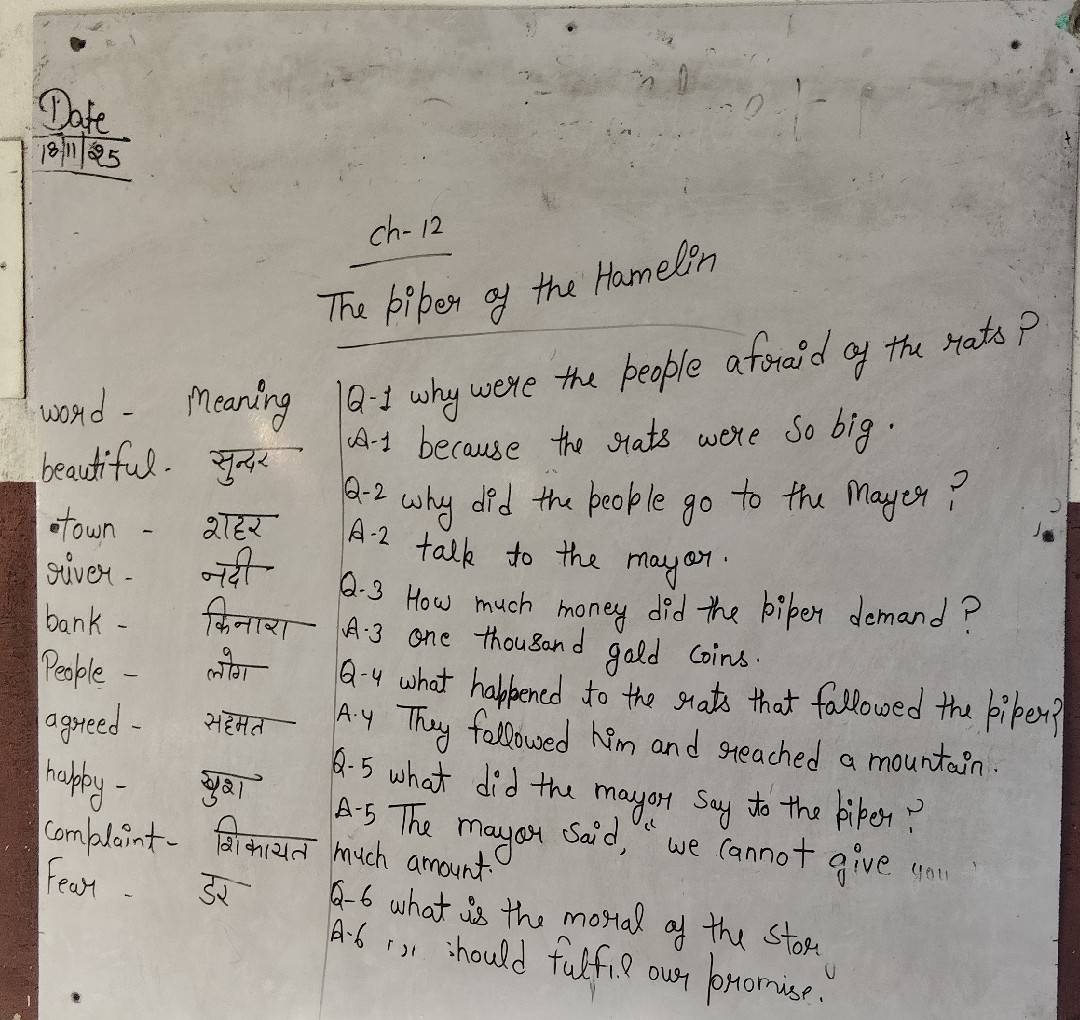 Date
18/11/25
Ch-12
The piper of the Hamelin
word - Meaning
beautiful - सुन्दर
town - शहर
river - नदी
bank - किनारा
People - लोग
agreed - सहमत
happy - खुश
Complaint - शिकायत
Fear - डर
Q-1 why were the people afraid of the rats?
A-1 because the rats were so big.
Q-2 why did the people go to the Mayer?
A-2 talk to the mayor.
Q-3 How much money did the piper demand?
A-3 one thousand gold coins.
Q-4 what happened to the rats that fallowed the piper?
A-4 They followed him and reached a mountain.
Q-5 what did the mayor say to the piper?
A-5 The mayor said, "we cannot give you
much amount.
Q-6 what is the moral of the
A-6 should fulfil our promise."